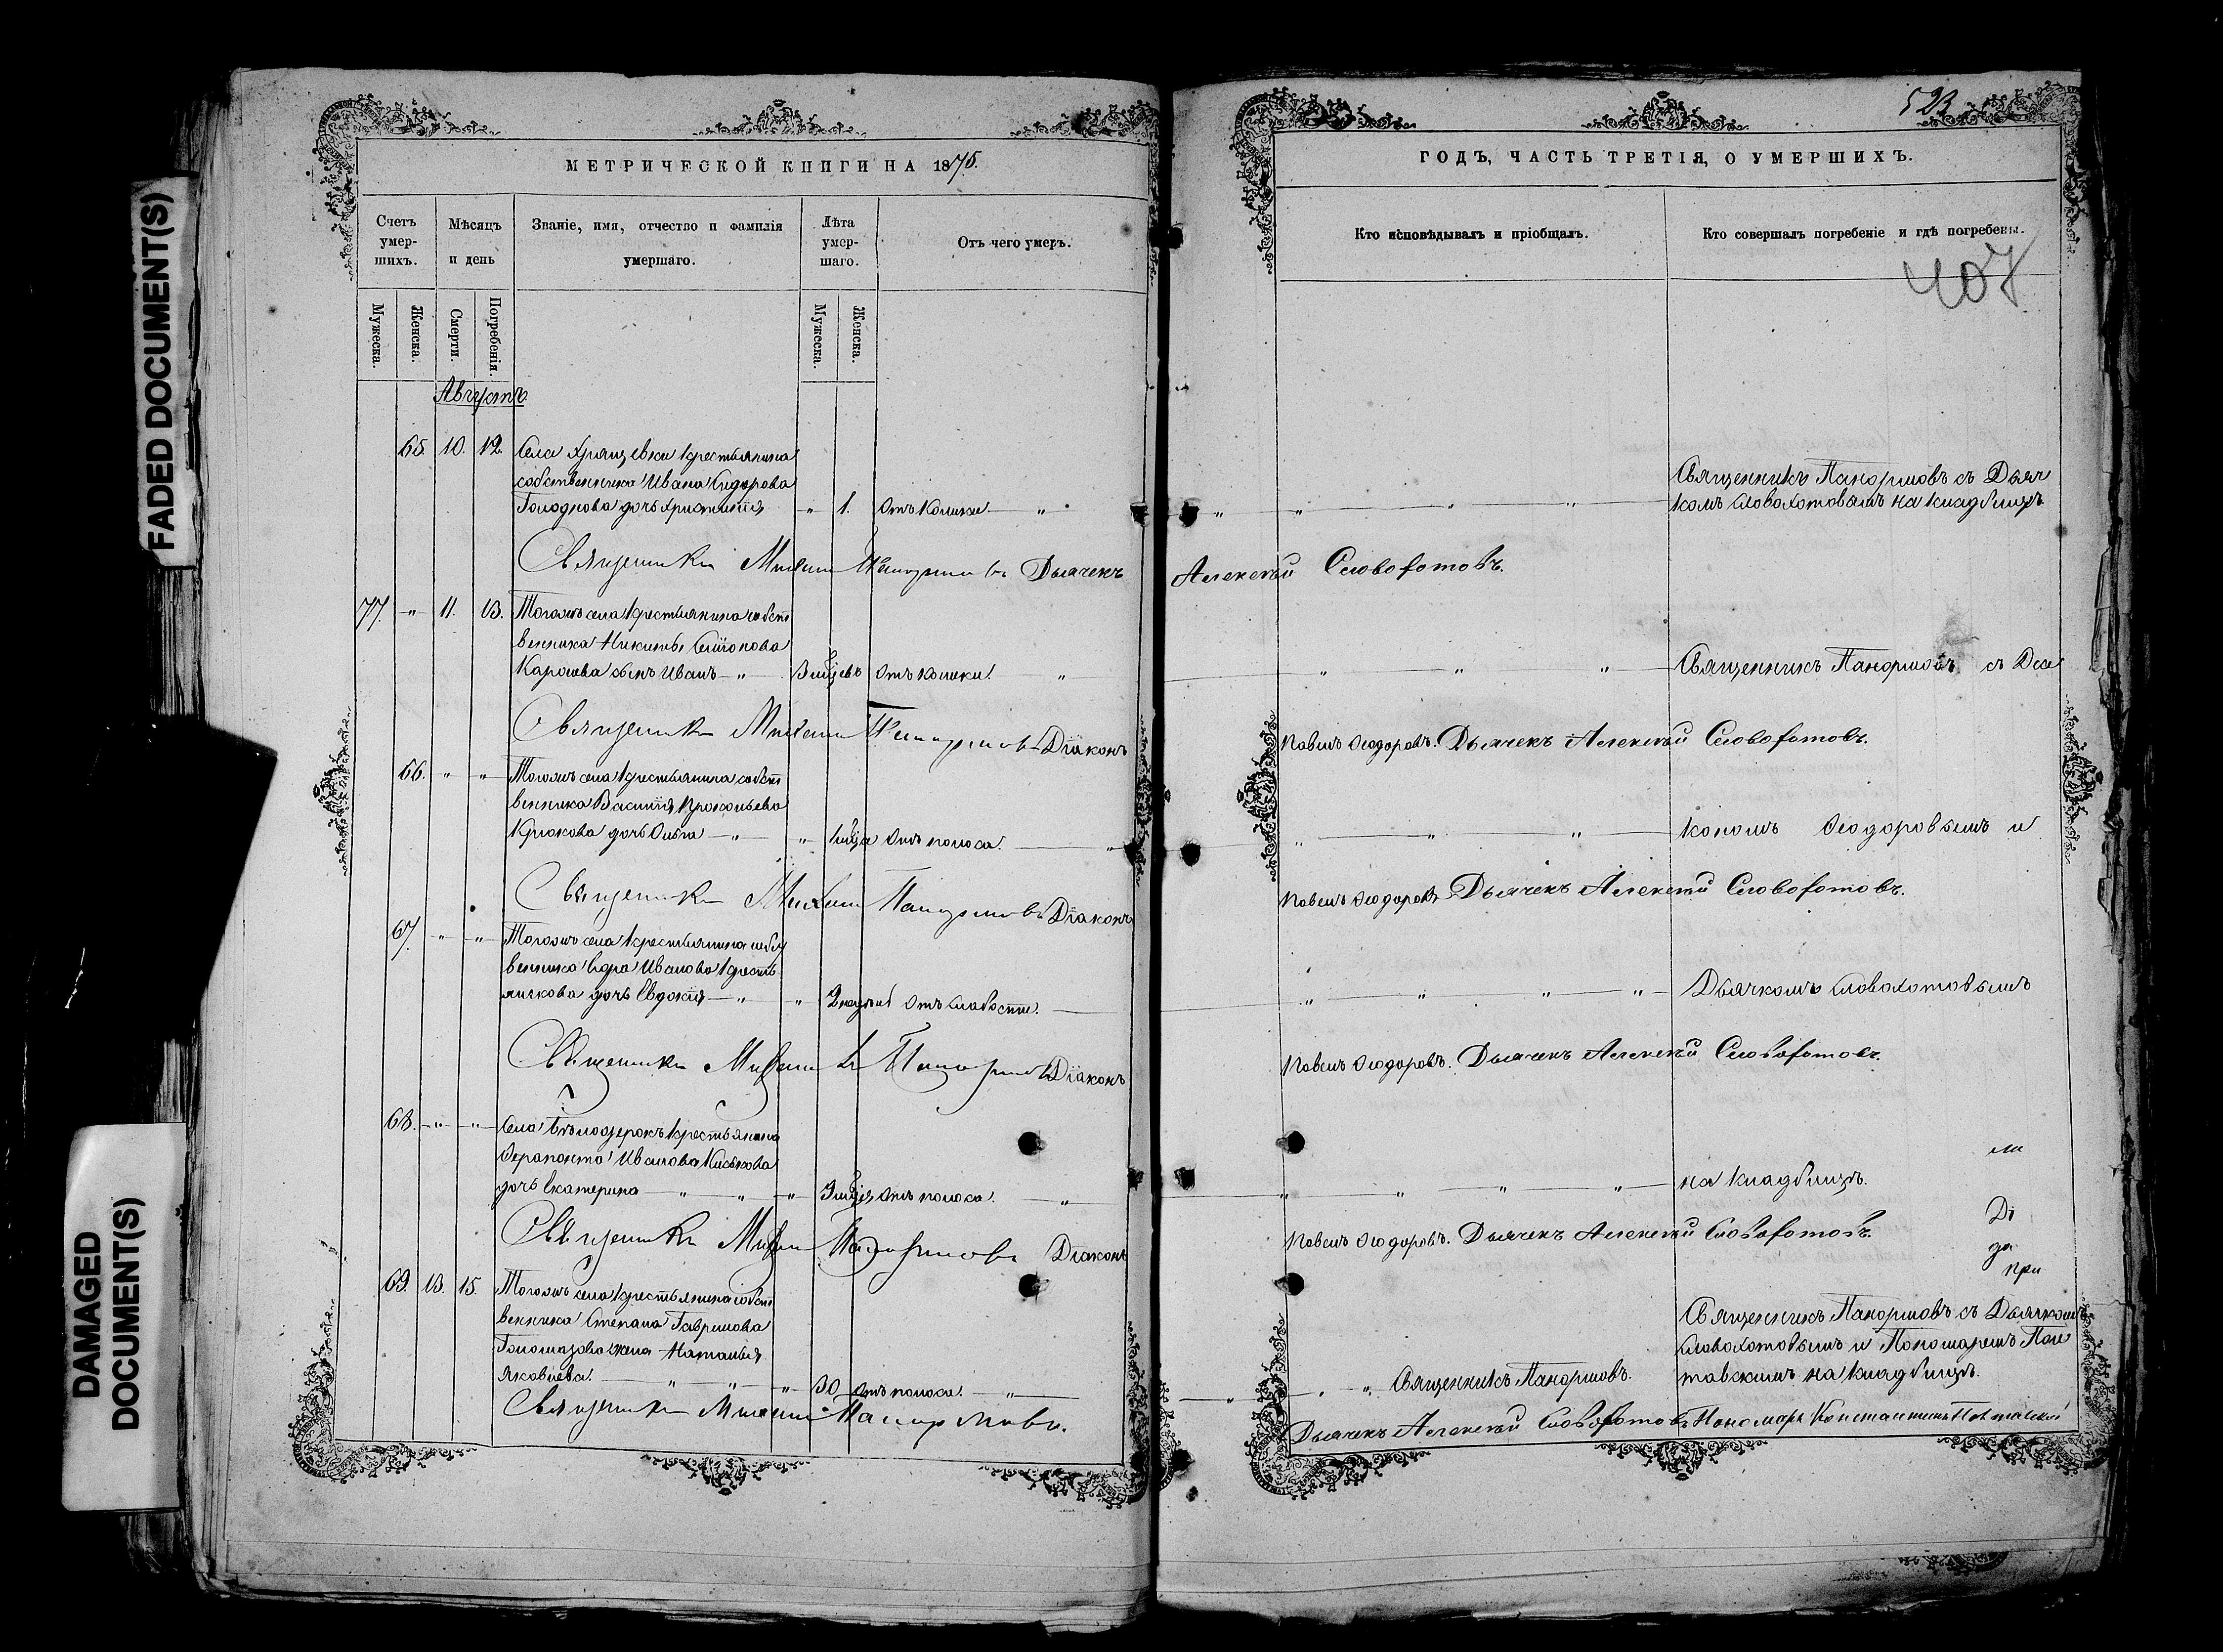 FADED DOCUMENT(S)
DAMAGED
DOCUMENT(S)
МЕТРИЧЕСКОЙ КНИГИ НА 1875.
Счетъ
умер-
шихъ.
Мѣсяцъ
и день
Званіе, имя, отчество и фамилія
умершаго.
Лѣта
умер-
шаго.
Отъ чего умеръ.
Мужеска.
Женска.
Смерти.
Погребенія.
Мужеска.
Женска.
Августъ
65. 10. 12. Села Хрящевки крестьянина
собственника Ивана Сидорова
Голоднова дочь Христинія " 1. Отъ колики "
Священникъ Михаилъ Панормовъ Дьячекъ
77. " 11. 13. Тогожъ села крестьянина собст
венника Никиты
сынъ Иванъ " 3 мѣсъ Отъ колики "
Священникъ Михаилъ Панормовъ Діаконъ
66. " " Тогожъ села крестьянина собст
венника Василія Прокопьева
Крюкова дочь Ольга " " Отъ поноса. "
Священникъ Михаилъ Панормовъ Діаконъ
67. " " Тогожъ села крестьянина собст
венника Ивановa
дочь Евдокія " " 2 недѣль Отъ слабости.
Священникъ Михаилъ Панормовъ Діаконъ
68. " " Села Бѣлоозерокъ крестьянина
Ѳерапонта Иванова
дочь Екатерина " " " Отъ поноса. "
Священникъ Михаилъ Панормовъ Діаконъ
69. 13. 15. Тогожъ села крестьянина собст
венника Степана Гаврилова
жена Наталья
Яковлева. " " " 30 Отъ поноса. "
Священникъ Михаилъ Панормовъ.
523
ГОДЪ, ЧАСТЬ ТРЕТІЯ, О УМЕРШИХЪ.
Кто исповѣдывалъ и пріобщалъ.
Кто совершалъ погребеніе и гдѣ погребены.
407
Священникъ Панормовъ съ Дьяч
" " " " комъ Словохотовымъ на кладбищѣ
Алексѣй Словохотовъ.
" " " Священникъ Панормовъ съ Діа
Павелъ Ѳеодоровъ. Дьячекъ Алексѣй Словохотовъ.
" " " кономъ Ѳеодоровымъ и
Павелъ Ѳеодоровъ Дьячекъ Алексѣй Словохотовъ.
" " " " Дьячкомъ Словохотовымъ
Павелъ Ѳеодоровъ. Дьячекъ Алексѣй Словохотовъ.
" " " " на кладбищѣ.
Павелъ Ѳеодоровъ. Дьячекъ Алексѣй Словохотовъ.
Ді
да
при
Священникъ Панормовъ съ Дьячкомъ
Словохотовымъ и Пономаремъ Пол
" " " Священникъ Панормовъ. тавскимъ на кладбищѣ.
Дьячекъ Алексѣй Словохотовъ Пономарь Константинъ Полтавскій